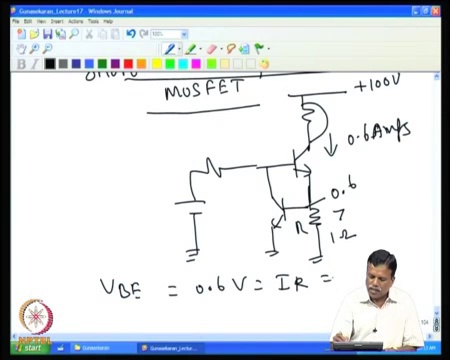 Gunasekaran_Lecture17 - Windows Journal
File Edit View Insert Actions Tools Help
MOSFET
+100V
0.6 Amps
0.6
7
R
1Ω
VBE = 0.6 V = IR =
start
Gunasekaran